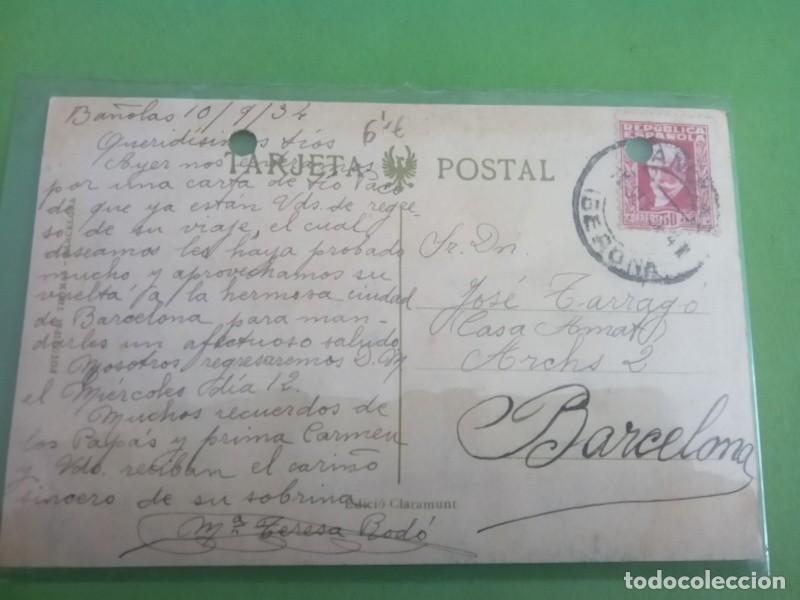 Bañolas 10/9/34
Queridísimos tíos
Ayer nos enteramos
por una carta de tío Paco
de que ya están Vds. de regre-
so de su viaje, el cual
deseamos les haya probado
mucho y aprovechamos su
vuelta a la hermosa ciudad
de Barcelona para man-
darles un afectuoso saludo
Nosotros regresaremos D. M.
el Miércoles día 12.
Muchos recuerdos de
los Papás y prima Carmen
y Vds. reciban el cariño
sincero de su sobrina
Mª Teresa Bodó
TARJETA POSTAL
REPÚBLICA
ESPAÑOLA
CORREOS 30
GERONA
Sr. Dn.
José Tarragó
Casa Amat
Archs 2
Barcelona
Edició Claramunt
todocoleccion
todocoleccion.net